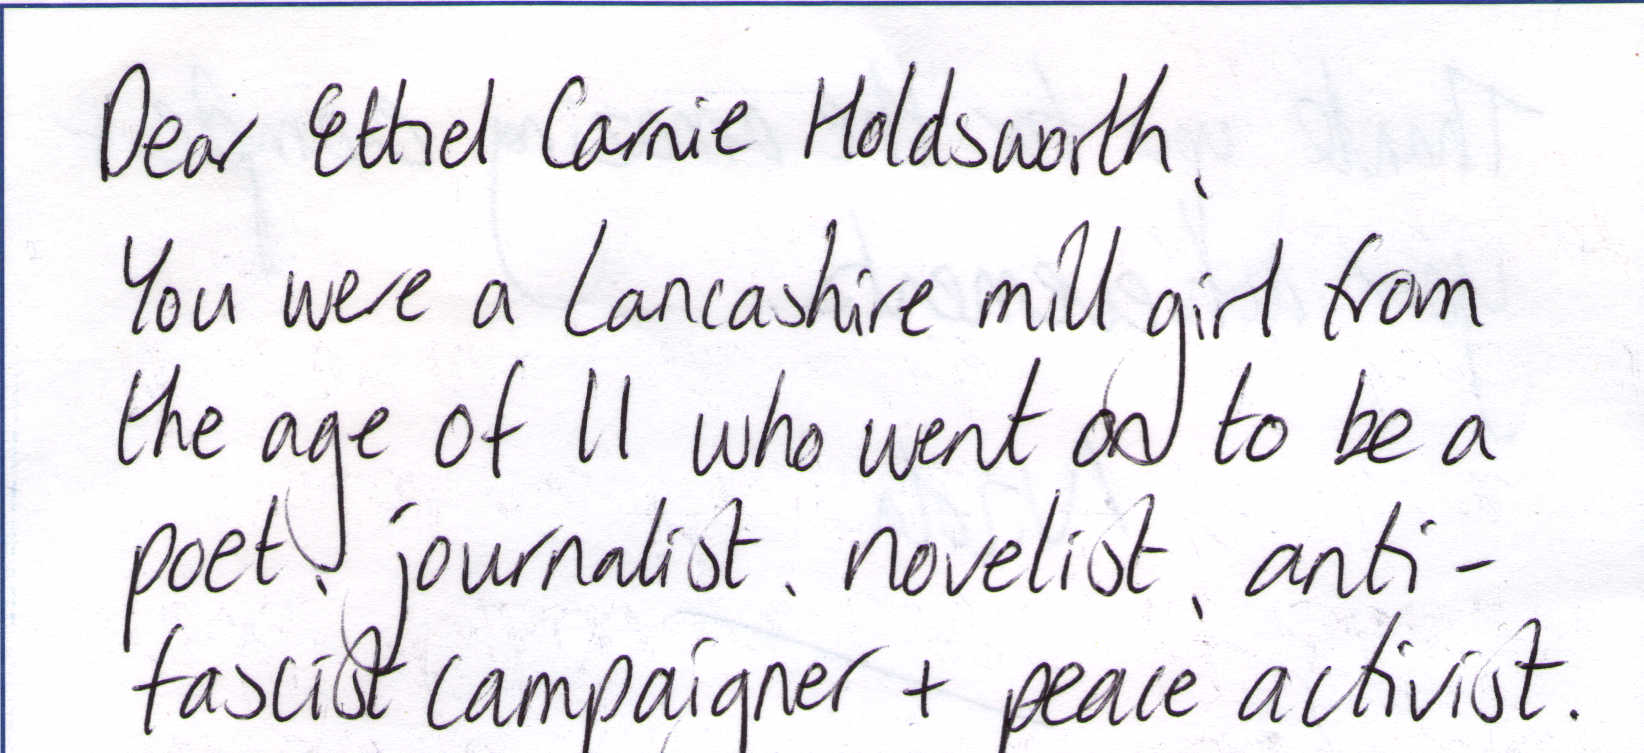 Dear Ethel Carnie Holdsworth,
You were a Lancashire mill girl from
the age of 11 who went on to be a
poet, journalist, novelist, anti-
fascist campaigner + peace activist.